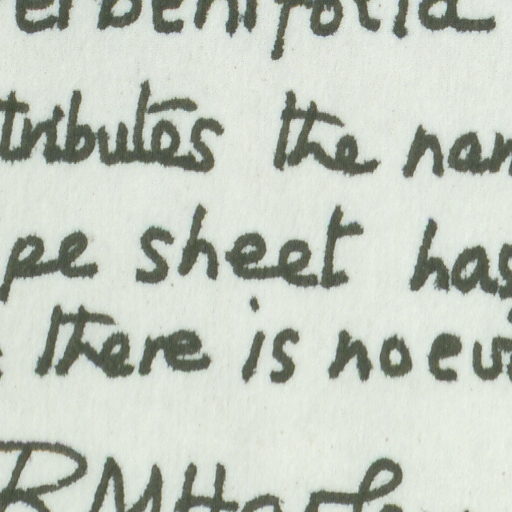 erbenifolia
tributes the nam
pe sheet has
there is no evi
RMHarley